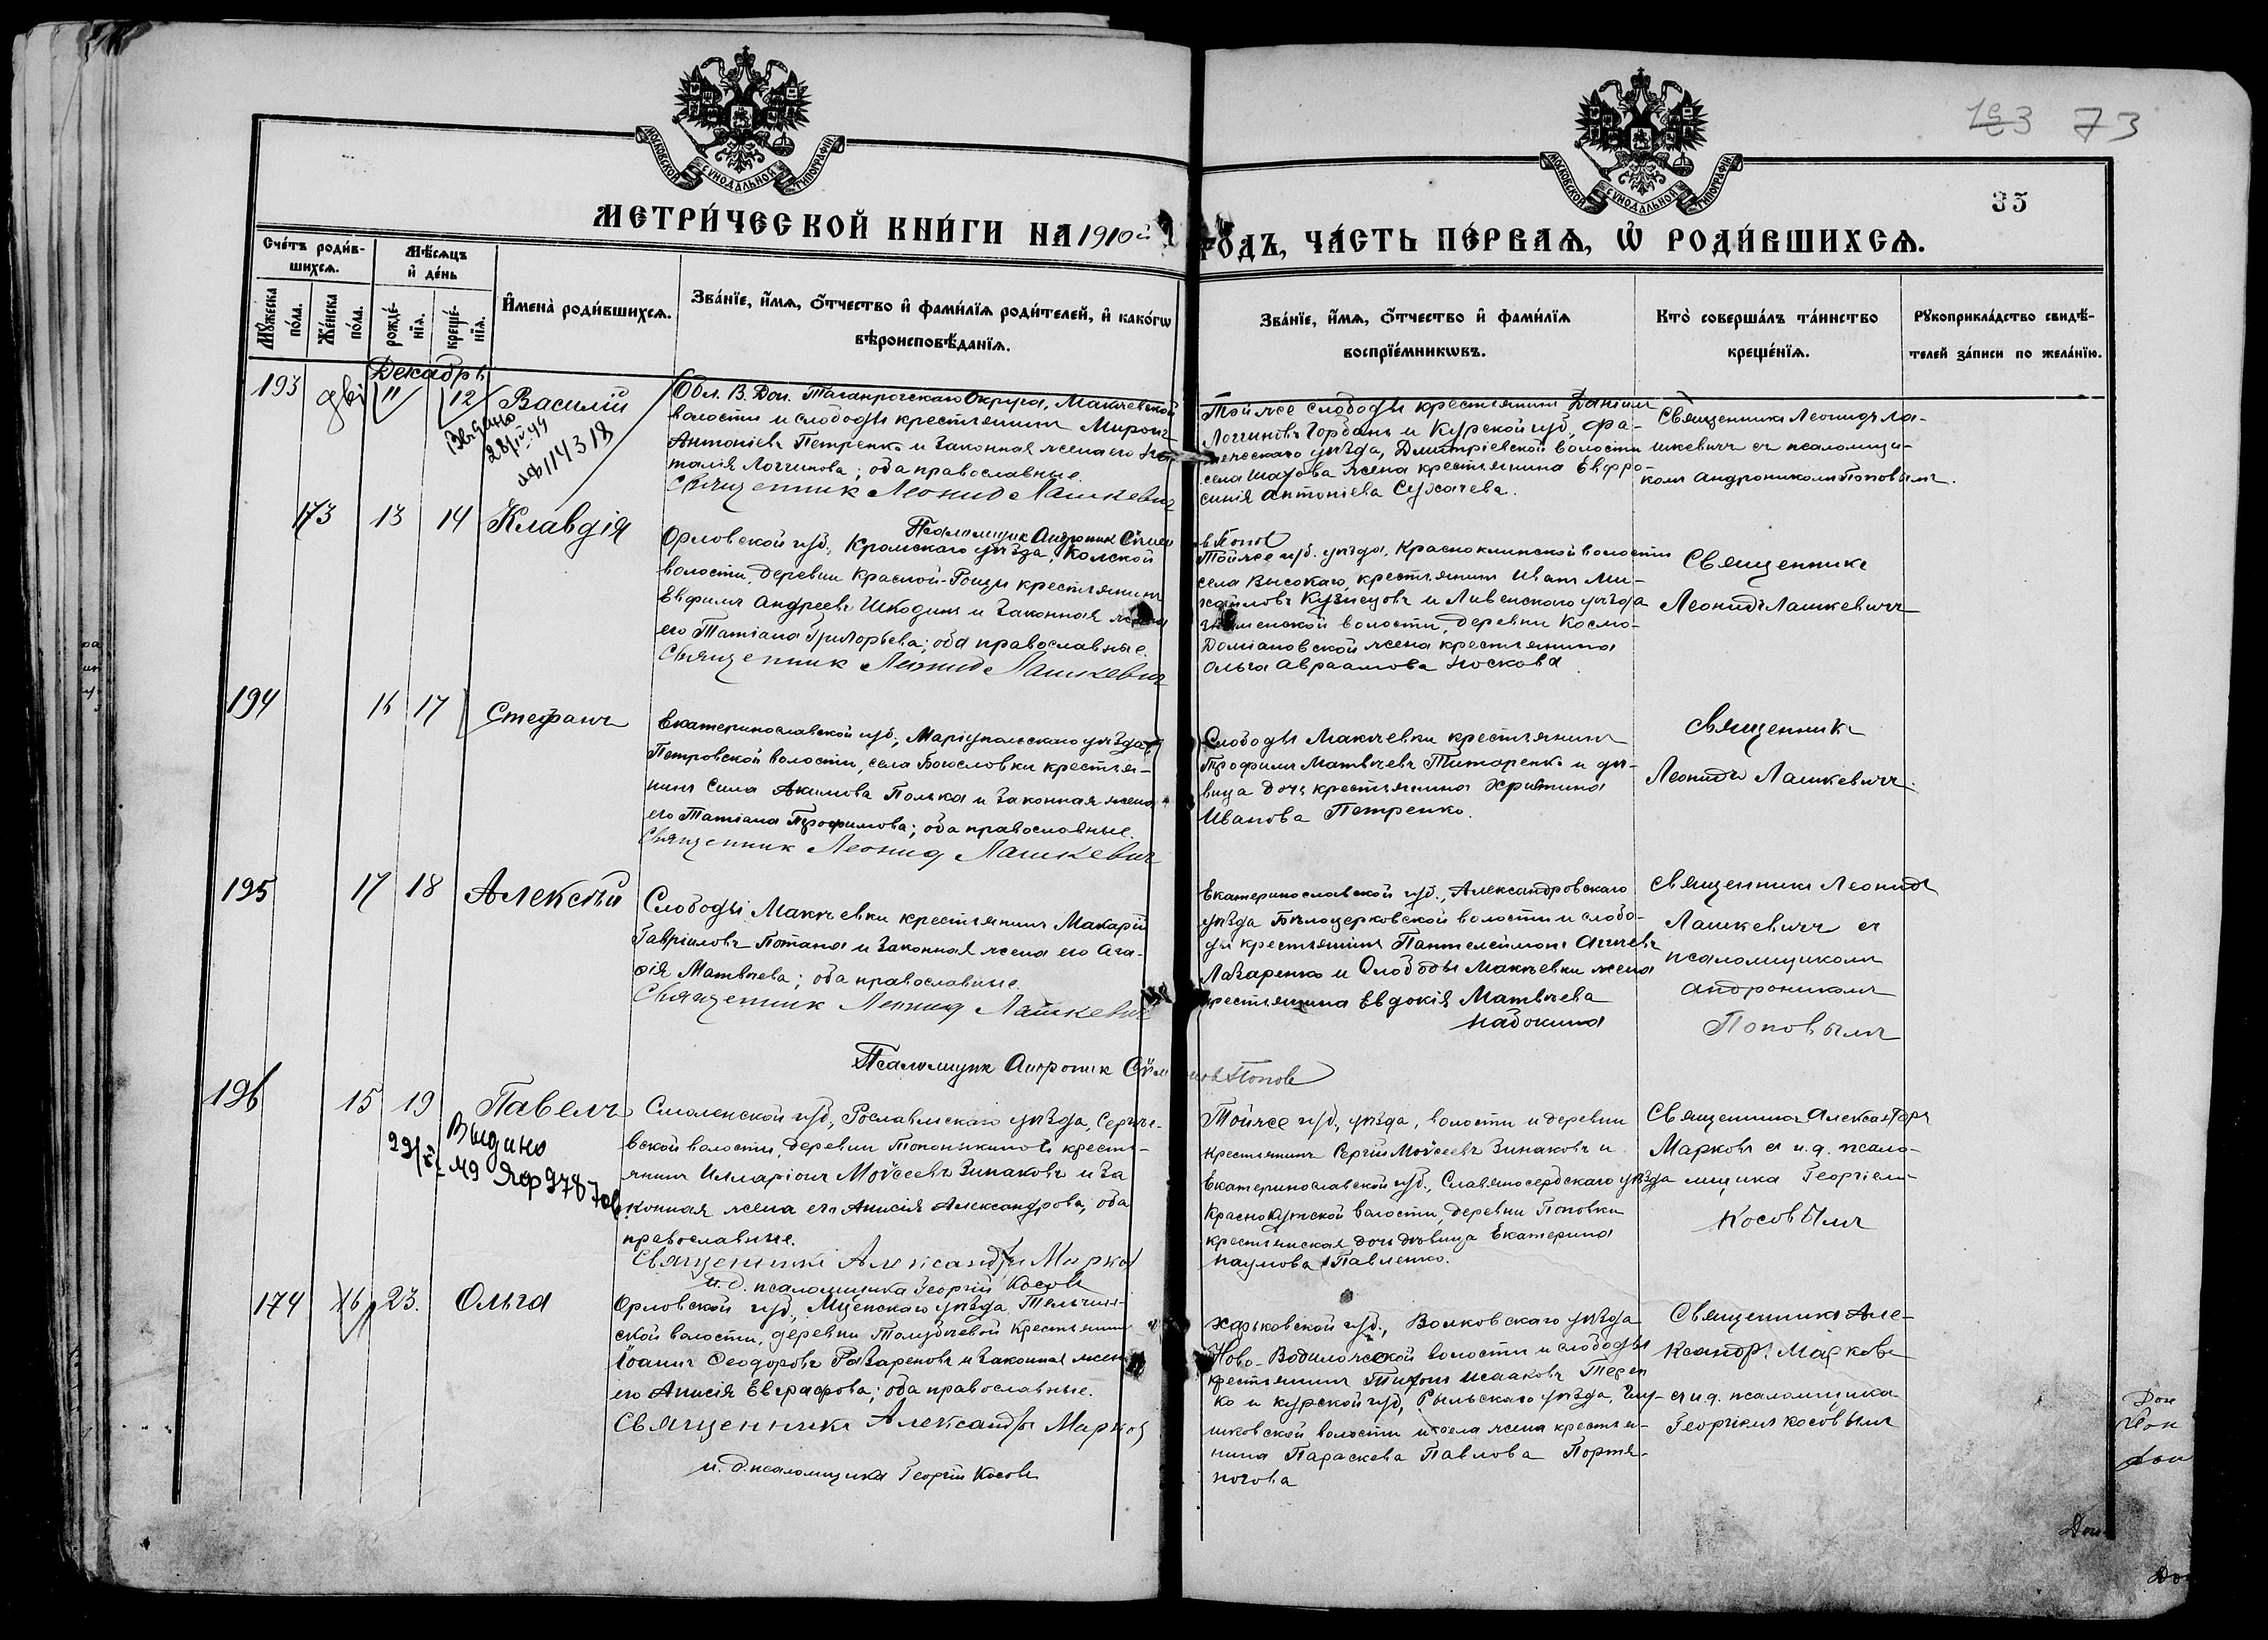 МОСКОВСКОЙ СѴНОДАЛЬНОЙ ТИПОГРАФІИ.
МОСКОВСКОЙ СѴНОДАЛЬНОЙ ТИПОГРАФІИ.
73
35
МЕТРИ́ЧЕСКОЙ КНИ́ГИ НА 1910й
ГОДЪ, ЧА́СТЬ ПЕ́РВАѦ, Ѡ҆ РОДИ́ВШИХСѦ.
Сче́тъ роди́в-
шихсѧ.
Мꙋ́жеска по́ла.
Же́нска по́ла.
Мѣ́сѧцъ
и҆ де́нь
рожде́-
нїѧ.
креще́-
нїѧ.
И҆мена̀ роди́вшихсѧ.
Зва́нїе, и҆́мѧ, ѻ҆́тчество и҆ фами́лїѧ роди́телей, и҆ како́гѡ
вѣроисповѣ́данїѧ.
Зва́нїе, и҆́мѧ, ѻ҆́тчество и҆ фами́лїѧ
воспрїе́мникѡвъ.
Кто̀ соверша́лъ та́инство
креще́нїѧ.
Рꙋкоприкла́дство свидѣ́-
телей за́писи по жела́нїю.
Декабрь
193
11
12
Василій
Выдано
28/IV 44
114318
Обл. В. Дон. Таганрогскаго Округа, Макѣевской
волости и слободы крестьянинъ Миронъ
Антоніевъ Петренко и законная жена его На-
талія Логгинова; оба православные.
Священник Леонид Лашкевич
Той же слободы крестьянинъ Даніилъ
Логгиновъ Горбань и Курской губ., Фа-
тежскаго уѣзда, Дмитріевской волости
села жена крестьянина Евфро-
синія Антоніева Сухачева.
Священникъ Леонидъ Ла-
шкевичъ съ псаломщи-
комъ Андроникомъ Поповымъ.
173
13
14
Клавдія
Псаломщик Андроник Сѵмео
въ Попов
Орловской губ., Кромскаго уѣзда, Колской
волости, деревни Красной-Рощи крестьянинъ
Евфимъ Андреевъ Шкодинъ и законная жена
его Татіана Григорьева; оба православные.
Священник Леонид Лашкевич
Той же губ. уѣзда, волости
села Высокаго, крестьянинъ Иванъ Ми-
хайловъ Кузнецовъ и Ливенскаго уѣзда
Знаменской волости, деревни Космо-
Доміановской жена крестьянина
Ольга Авраамова Носкова.
Священникъ
Леонидъ Лашкевичъ
194
16
17
Стефанъ
Екатеринославской губ., Маріупольскаго уѣзда
Петровской волости, села Богословки крестья-
нинъ Сила Акимова Полька и законная жена
его Татіана Трофимова; оба православные.
Священник Леонид Лашкевич
Слободы Макѣевки крестьянинъ
Трофимъ Матвѣевъ Титаренко и дѣ-
вица дочь крестьянина Христина
Иванова Петренко.
Священникъ
Леонидъ Лашкевичъ.
195
17
18
Алексѣй
Слободы Макѣевки крестьянинъ Макарій
Гавріиловъ Потана и законная жена его Ага-
фія Матвѣева; оба православные.
Священник Леонид Лашкевич
Екатеринославской губ., Александровскаго
уѣзда Бѣлоцерковской волости и слобо-
ды крестьянинъ Пантелеймонъ
Лазаренко и Слободы Макѣевки жена
крестьянина Евдокія Матвѣева
Набокина
Священникъ Леонидъ
Лашкевичъ съ
псаломщикомъ
Андроникомъ
Поповымъ
Псаломщик Андроник Сѵм
еов Попов
196
15
19
Павелъ
Выдано
49
Смоленской губ., Рославльскаго уѣзда,
вской волости, деревни кресть-
янинъ Илларіонъ Моѵсеевъ Зинаковъ и за
конная жена его Анисія Александрова, оба
православные.
Священникъ Александръ Марков
и. д. псаломщика Георгій Косовъ
Той же губ., уѣзда, волости и деревни
крестьянинъ Сергій Моѵсеевъ Зинаковъ и
Екатеринославской губ., Славяносербскаго уѣзда
Краснокутской волости, деревни Поповки
крестьянская дочь дѣвица Екатерина
Наумова Павленко.
Священникъ Александръ
Марковъ съ и. д. псало-
мщика Георгіемъ
Косовымъ
174
16
23.
Ольга
Орловской губ., Мценскаго уѣзда,
ской волости, деревни Толубѣевой крестьянинъ
Іоаннъ Ѳеодоровъ Разареновъ и законная жена
его Анисія Евграфова; оба православные.
Священникъ Александръ Марков
и. д. псаломщика Георгій Косовъ
Харьковской губ., Волковскаго уѣзда
Ново-Водолажской волости и слободы
крестьянинъ Тихонъ Исааковъ Терен
ко и Курской губ., Рыльскаго уѣзда, Глу-
шковской волости и села жена крестья-
нина Параскева Павлова Портя-
ногова
Священникъ Але-
ксандръ Марковъ
съ и. д. псаломщика
Георгіемъ Косовымъ